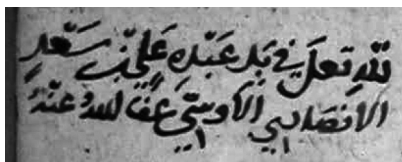 لله تعلى في يد عبده علي بن سعد
الانصاري الاوسي عفا الله عنه